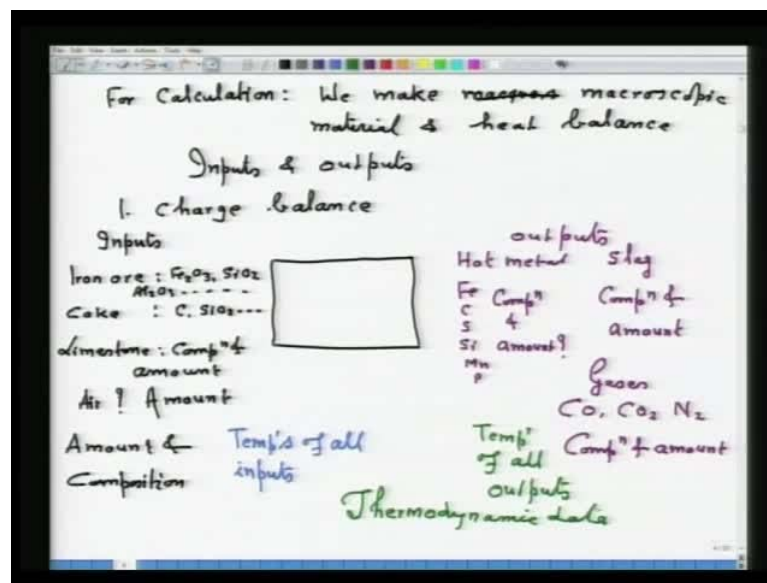 For Calculation: We make macroscopic
material & heat balance
Inputs & outputs
1. Charge balance
Inputs
Iron ore : Fe2O3, SiO2
Al2O3 - - - - - -
Coke : C, SiO2 ---
Limestone : Compn &
amount
Air ? Amount
Amount &
Composition
Temp's of all
inputs
outputs
Hot metal Slag
Fe Compn Compn &
C & amount
S
Si amount?
Mn
P
Gases
CO, CO2 N2
Compn & amount
Temp'
of all
outputs
Thermodynamic data